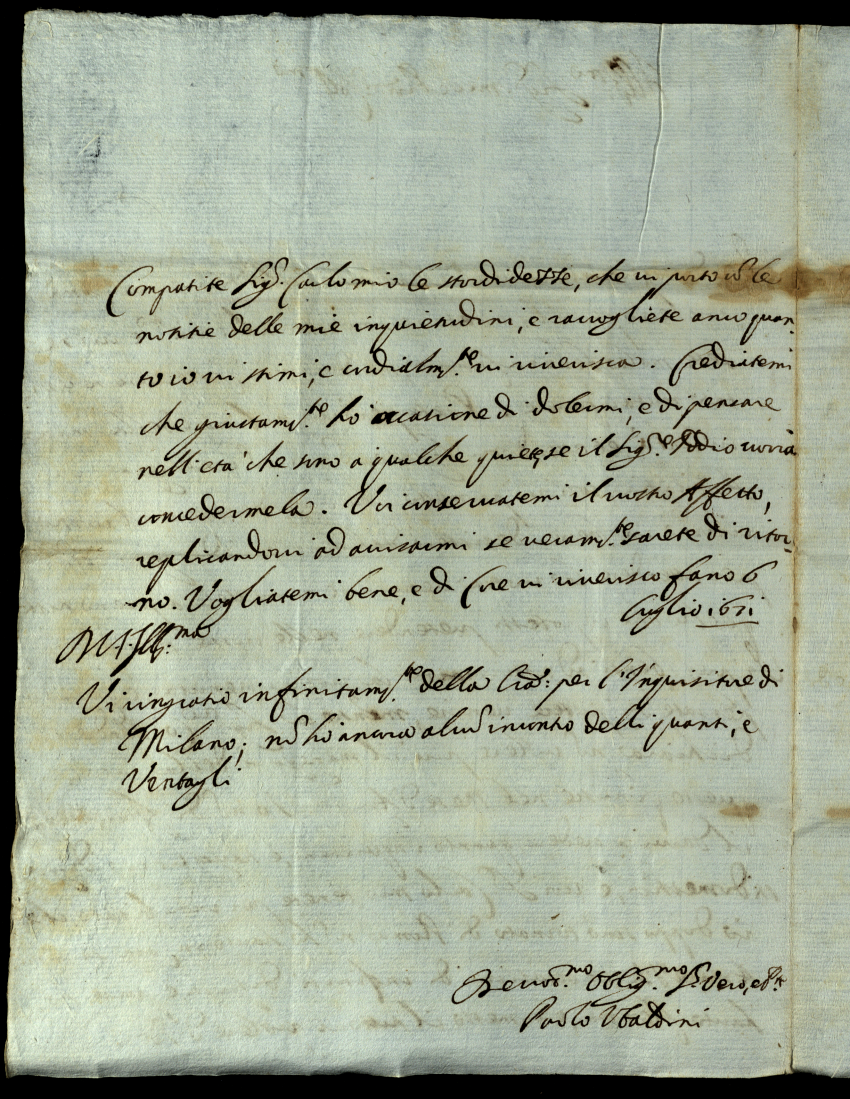 Compatite Sig.r Carlo mio le stordidezze, che vi porto cõ le
notitie delle mie inquietudini, e raccogliete anco quan-
to io vi stimi, e cordialm.te vi riverisca. Crediatemi
che giustam.te hò occasione di dolermi, e di pensare
nell'età che sono a qualche quiete, se il Sig.re Iddio vorrà
concedermela. Voi conservatemi il vostro Affetto,
replicandovi ad avisarmi se veram.te sarete di ritor-
no. Vogliatemi bene, e di Core vi riverisco Fano 6
luglio 1671
M.to Ill.mo
Vi ringratio infinitam.te della per l'Inquisitore di
Milano; nõ hò ancora alcũ incontro delli quanti, e
Ventagli
Devot.mo Oblig.mo S.re Vero,
Paolo Ubaldini